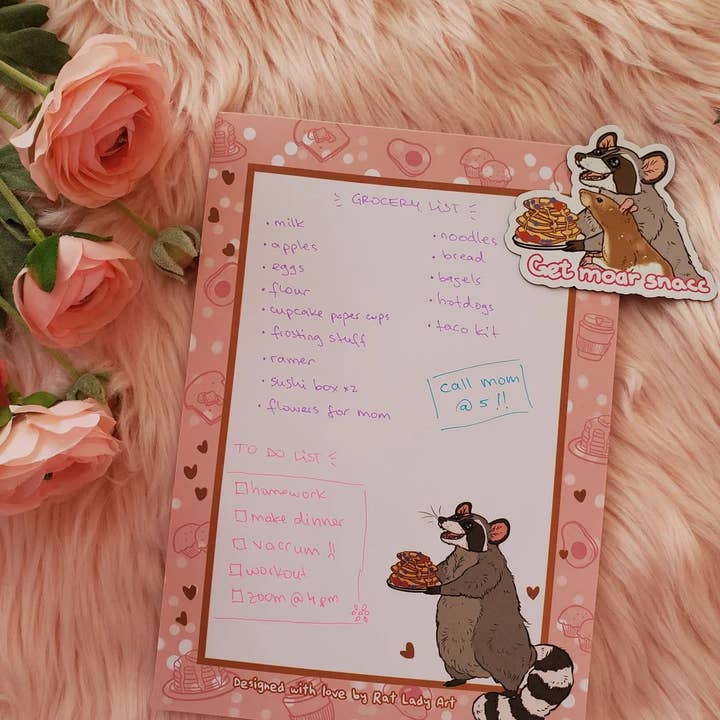 GROCERY LIST
• milk
• apples
• eggs
• flour
• cupcake paper cups
• frosting stuff
• ramen
• sushi box x2
• flowers for mom
• noodles
• bread
• bagels
• hotdogs
• taco kit
call mom
@ 5 !!
TO DO LIST
homework
make dinner
vaccum !!
workout
zoom @ 4 pm
Get moar snacc
Designed with love by Rat Lady Art